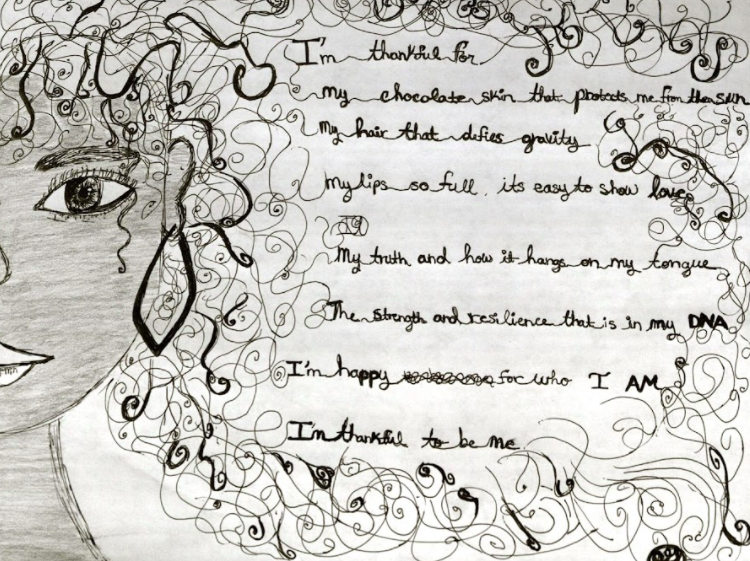 I'm thankful for
my chocolate skin that protects me from the sun
My hair that defies gravity
My lips so full, its easy to show love
My truth and how it hangs on my tongue
The strength and resilience that is in my DNA
I'm happy for who I AM
I'm thankful to be me